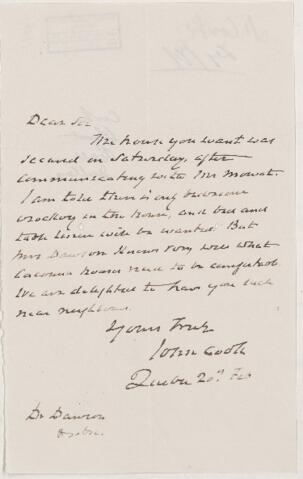 Dear Sir
The house you want was
secured on Saturday, after
communicating with Mr Mowat.
I am told there is only bedroom
crockery in the house, and bed and
table linen will be wanted. But
Mrs Dawson knows very well what
Cacouna houses need to be comfortable
We are delighted to have you such
near neighbours.
Yours truly
John Cook
Quebec 20th Feb
Dr Dawson